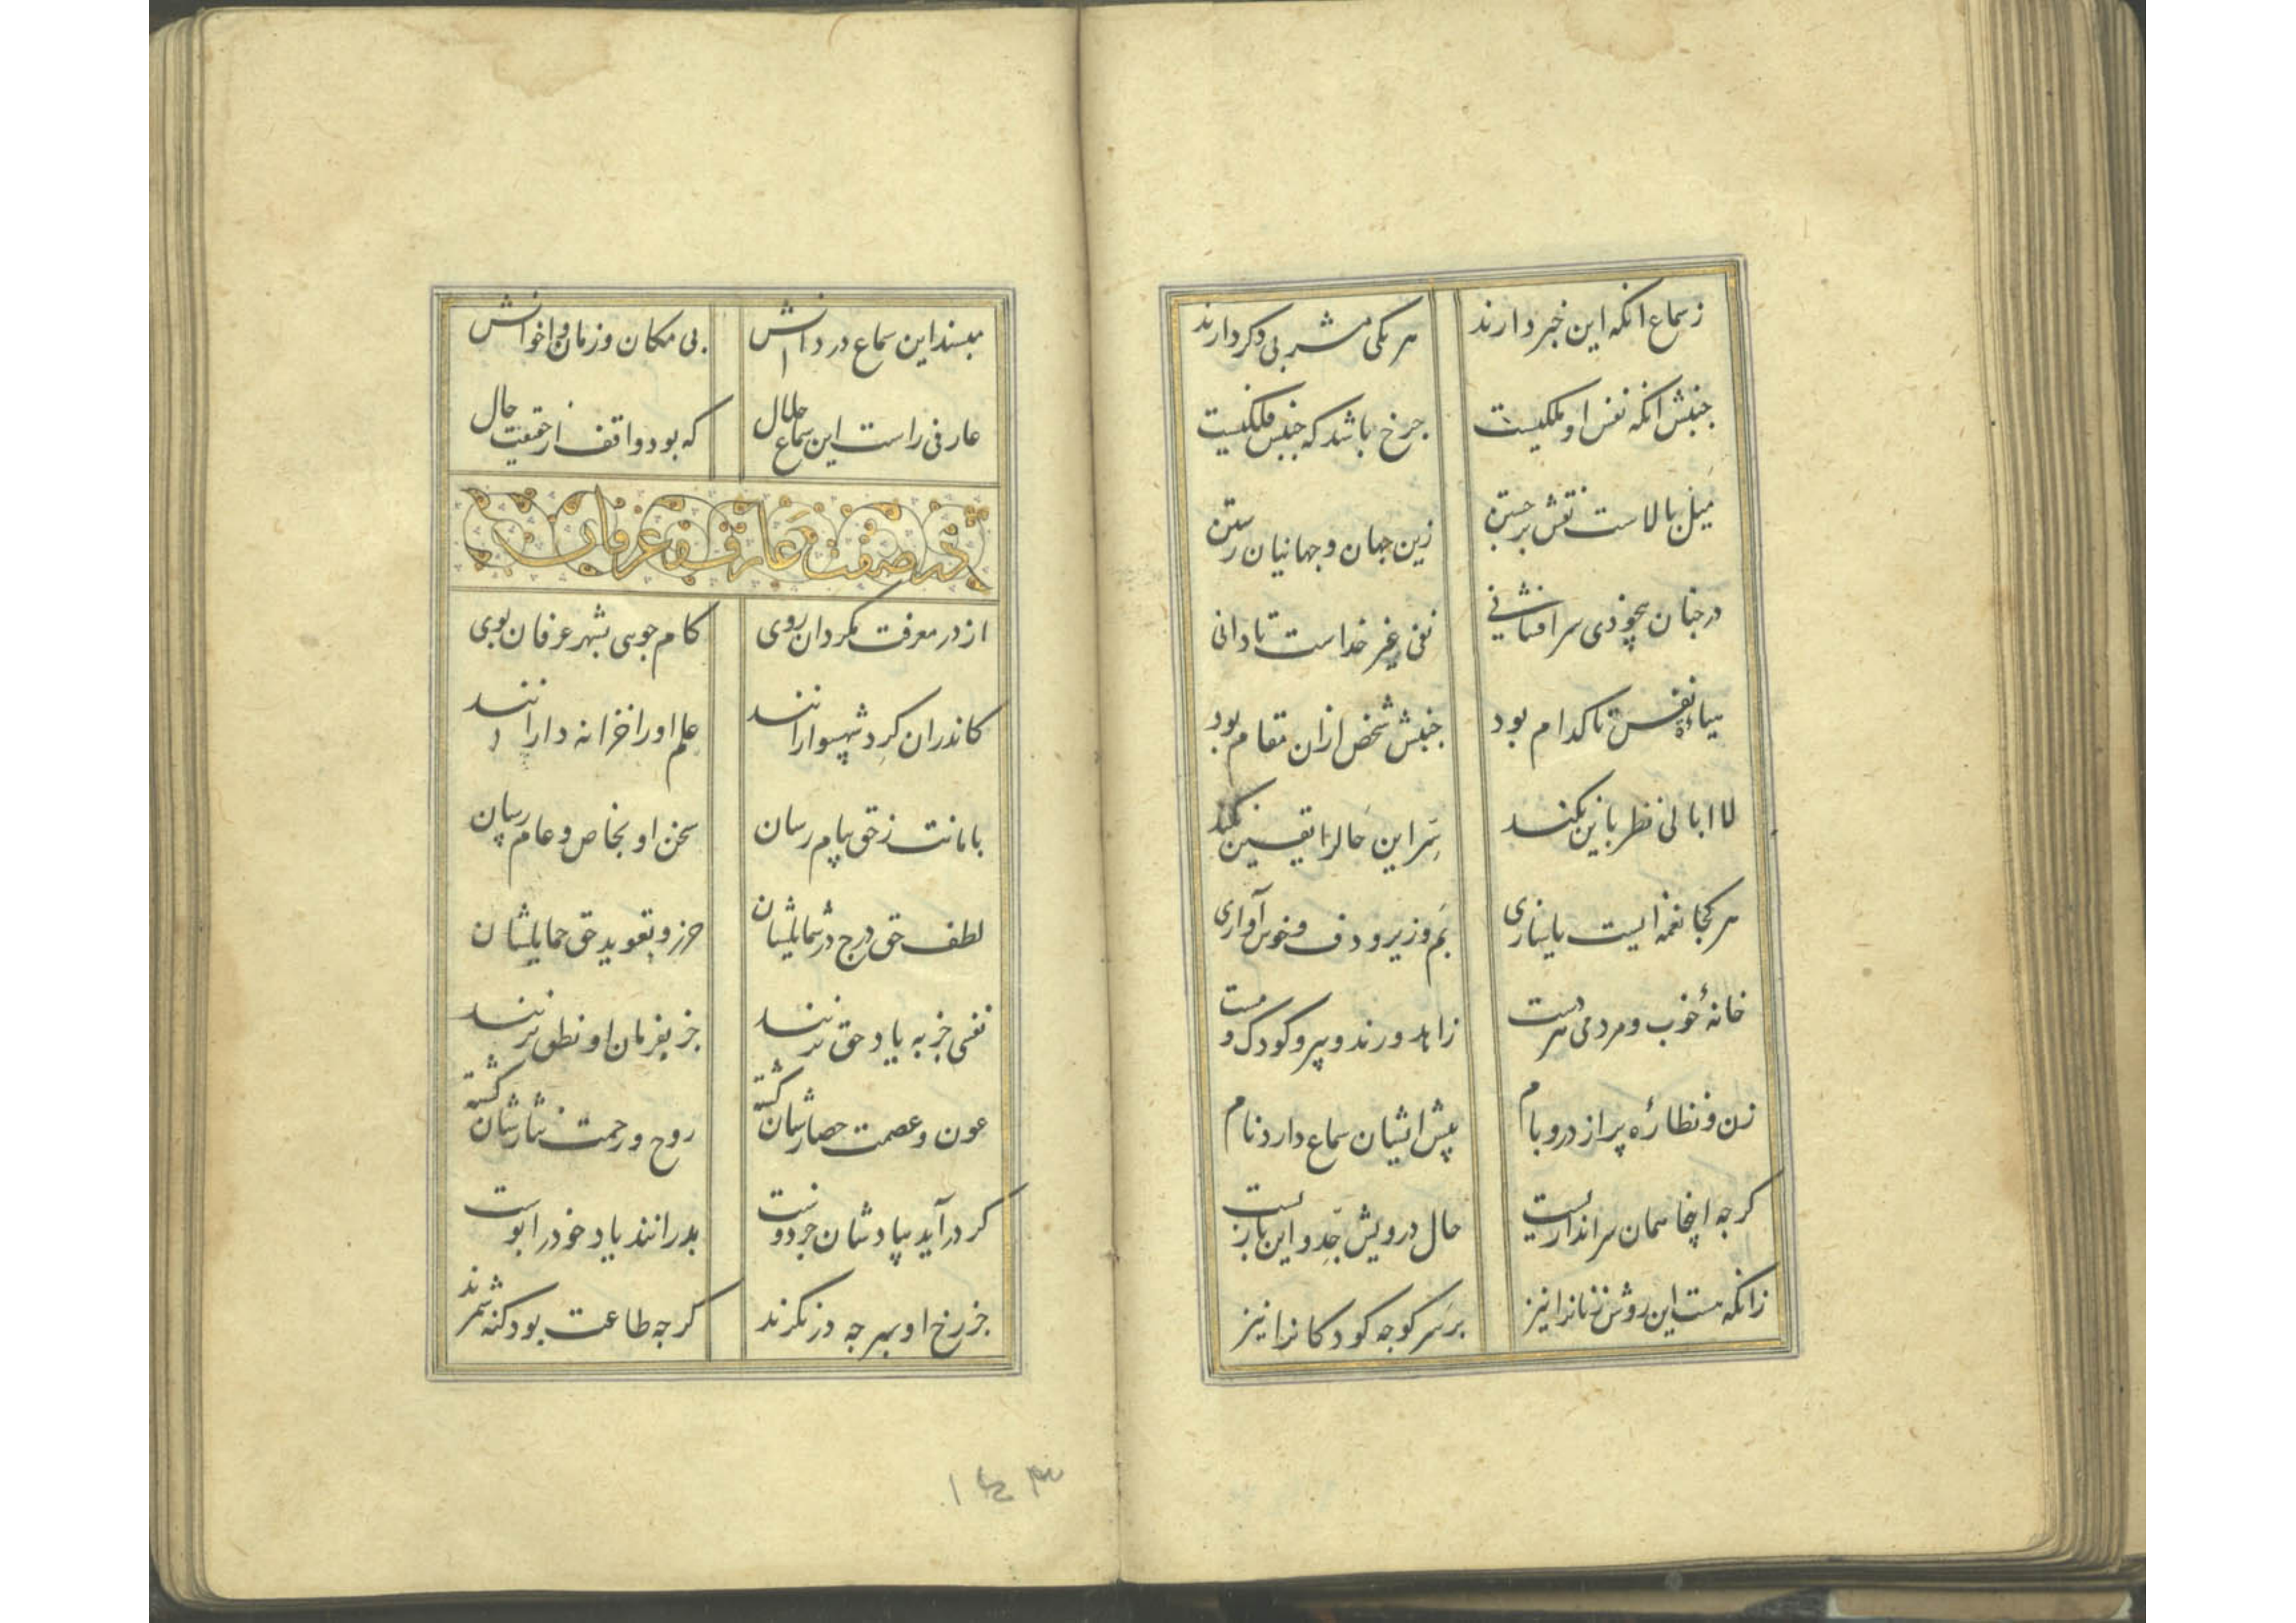 ز سماع انکه این خبر دارند هر یکی مشربی دکر دارند
جنبش انکه نفس او ملکیست چرخ باشد که جنبش فلکیست
میل بالاست نقش برجستن زین جهان و جهانیان رستن
در چنان بیخودی سرافشانی نفی غیر خداست تا دانی
تا کدام بود جنبش شخص ازان مقام بود
لا ابالی نظر باین نکند سر این حال را یقین نکند
هر کجا نغمه ایست یا سازی بم و زیر و دف و خوش آوازی
خانهٔ خوب و مردمی هر دست زاهد و رند و پیر و کودک و مست
زن و نظارهٔ پر از در و بام پیش ایشان سماع دارد نام
کرچه اینجا همان سراندازیست حال درویش جد و این بازیست
زانکه هست این روش زنانرا نیز بر سر کوچه کودکانرا نیز
مبسند این سماع در دانش بی مکان و زمان و اخوانش
عارفی راست این سماع حلال که بود واقف از حقیقت حال
در صفت عارف و عرفان
از در معرفت مکردان روی کام جویی بشهر عرفان پوی
کاندران کرد شهسوارانند علم او را خزانه دارانند
بامانت ز حق پیام رسان سخن او بخاص و عام رسان
لطف حق درج در شمایلشان حرز و تعویذ حق حمایلشان
نفسی جز به یاد حق نزنند جز بفرمان او نطق نزنند
عون و عصمت حصارشان کشته روح و رحمت نثارشان کشته
کر درآید بیادشان جز دوست بدرانند یاد خود را پوست
جز رخ او بهر چه در نکرند کرچه طاعت بود کنه شمرند